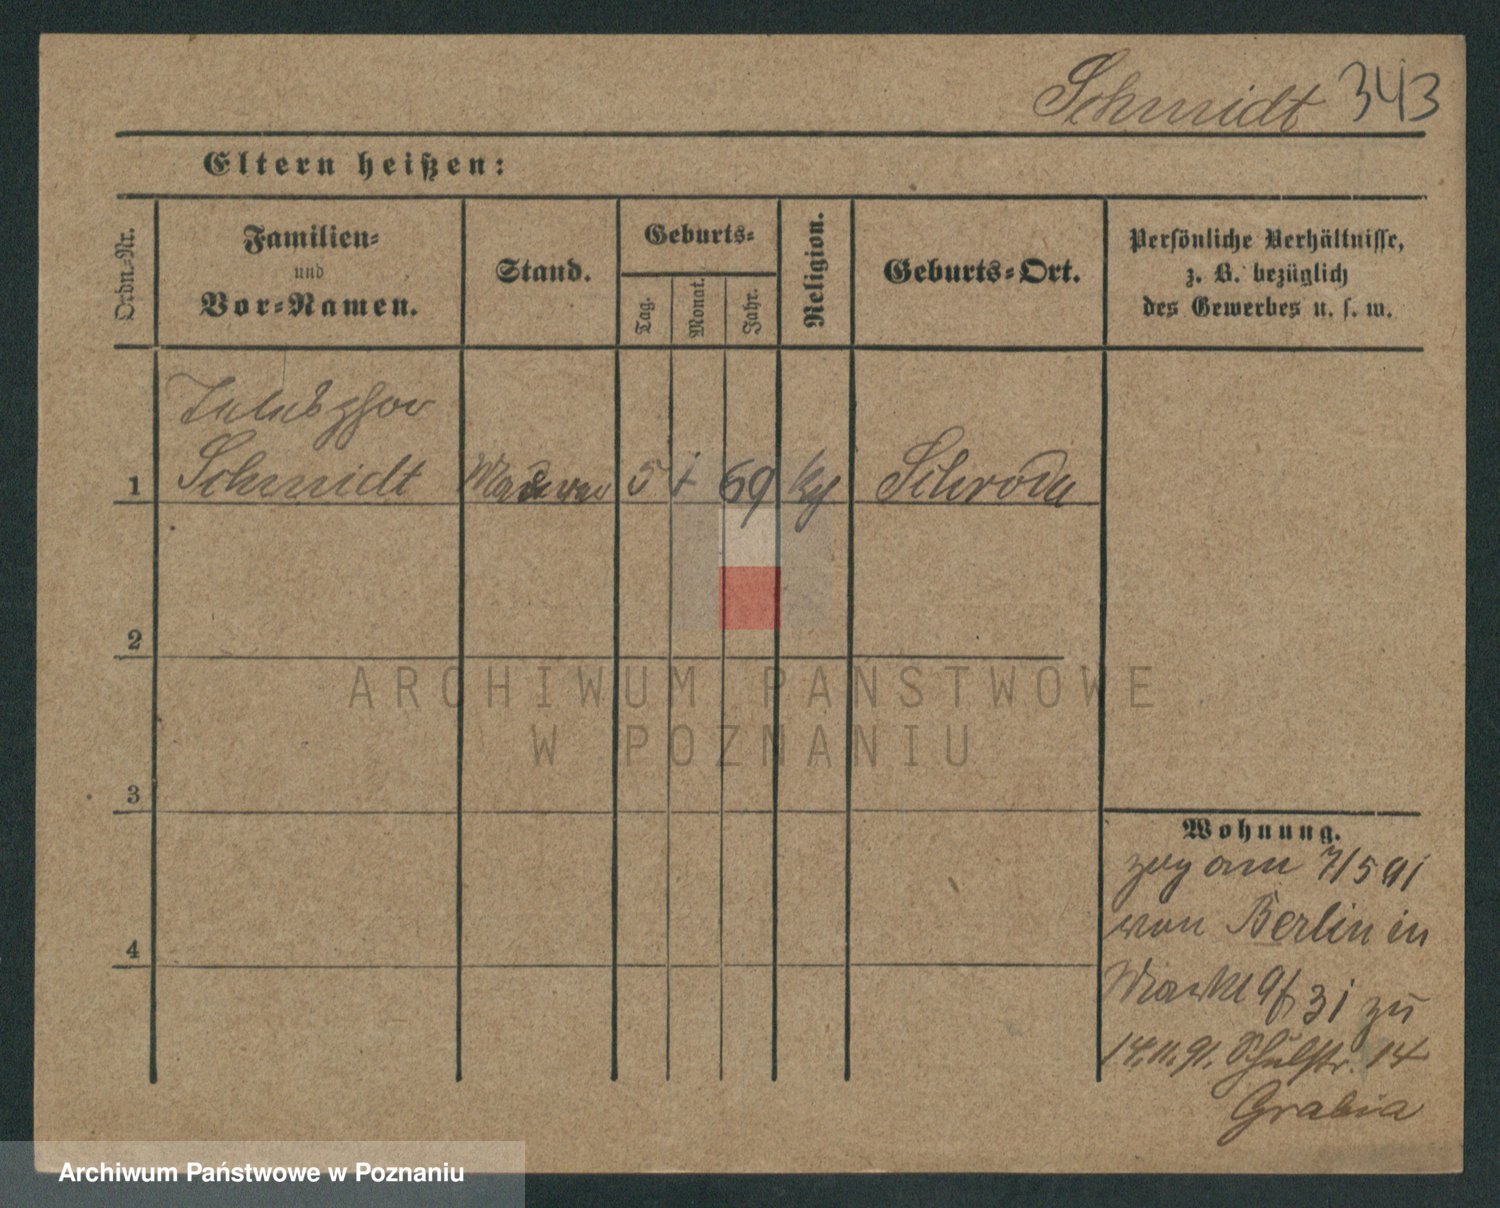 Schmidt 343
Eltern heißen:
Ordn.-Nr.
Familien-
und
Vor-Namen.
Stand.
Geburts-
Tag.
Monat.
Jahr.
Religion.
Geburts-Ort.
Persönliche Verhältnisse,
z. B. bezüglich
des Gewerbes u. s. w.
1 Schmidt 5 69 Schroda
2
3
4
Wohnung.
zog am 7/5 91
von Berlin in
31 zu
14.11.91. Schulstr. 14
Grabia
ARCHIWUM PAŃSTWOWE
W POZNANIU
Archiwum Państwowe w Poznaniu